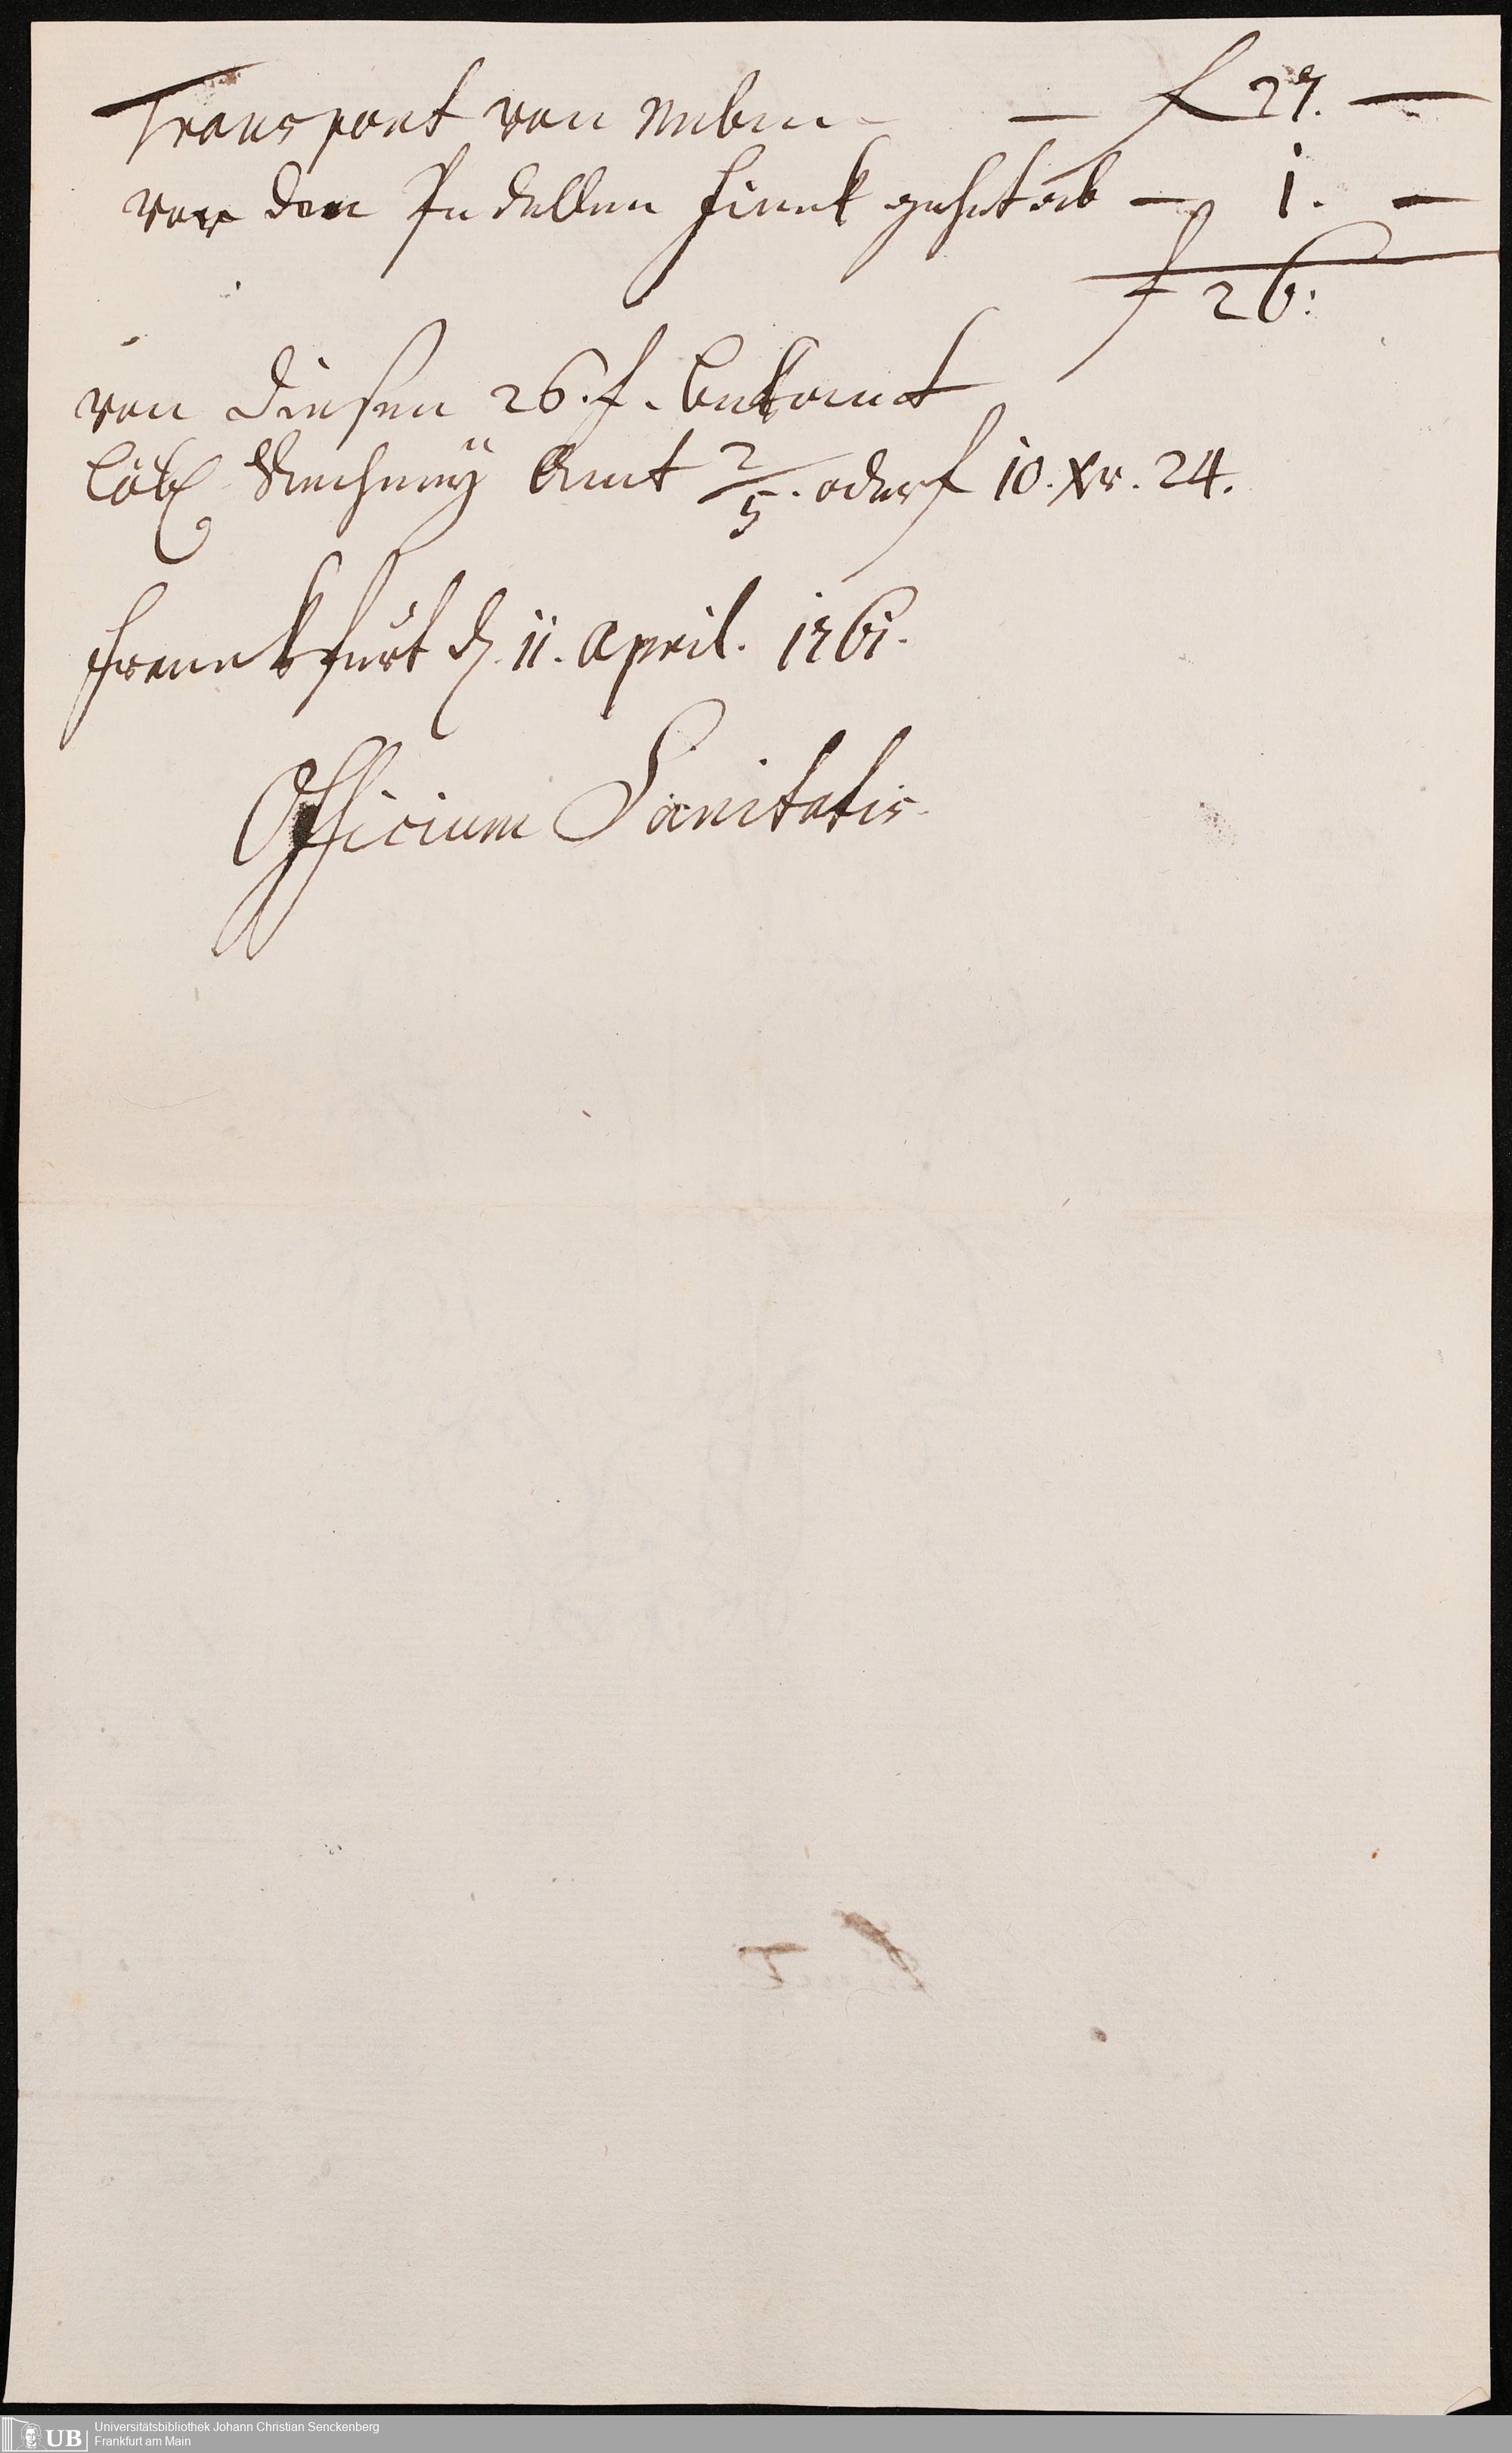 Transport von neben — f 27. —
vor den Pedellen Finck gehet ab — 1. —
f 26:
von diesen 26. f. bekomt
Löbl. Rechney Amt 2/5. oder f 10. Xr. 24.
Franckfurt d. 11. April. 1761.
Officium Sanitatis
UB
Universitätsbibliothek Johann Christian Senckenberg
Frankfurt am Main